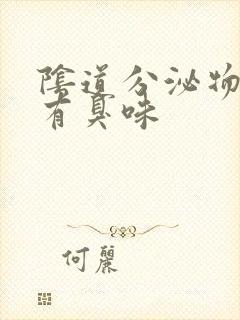 陰道分泌物
有臭味
何麗